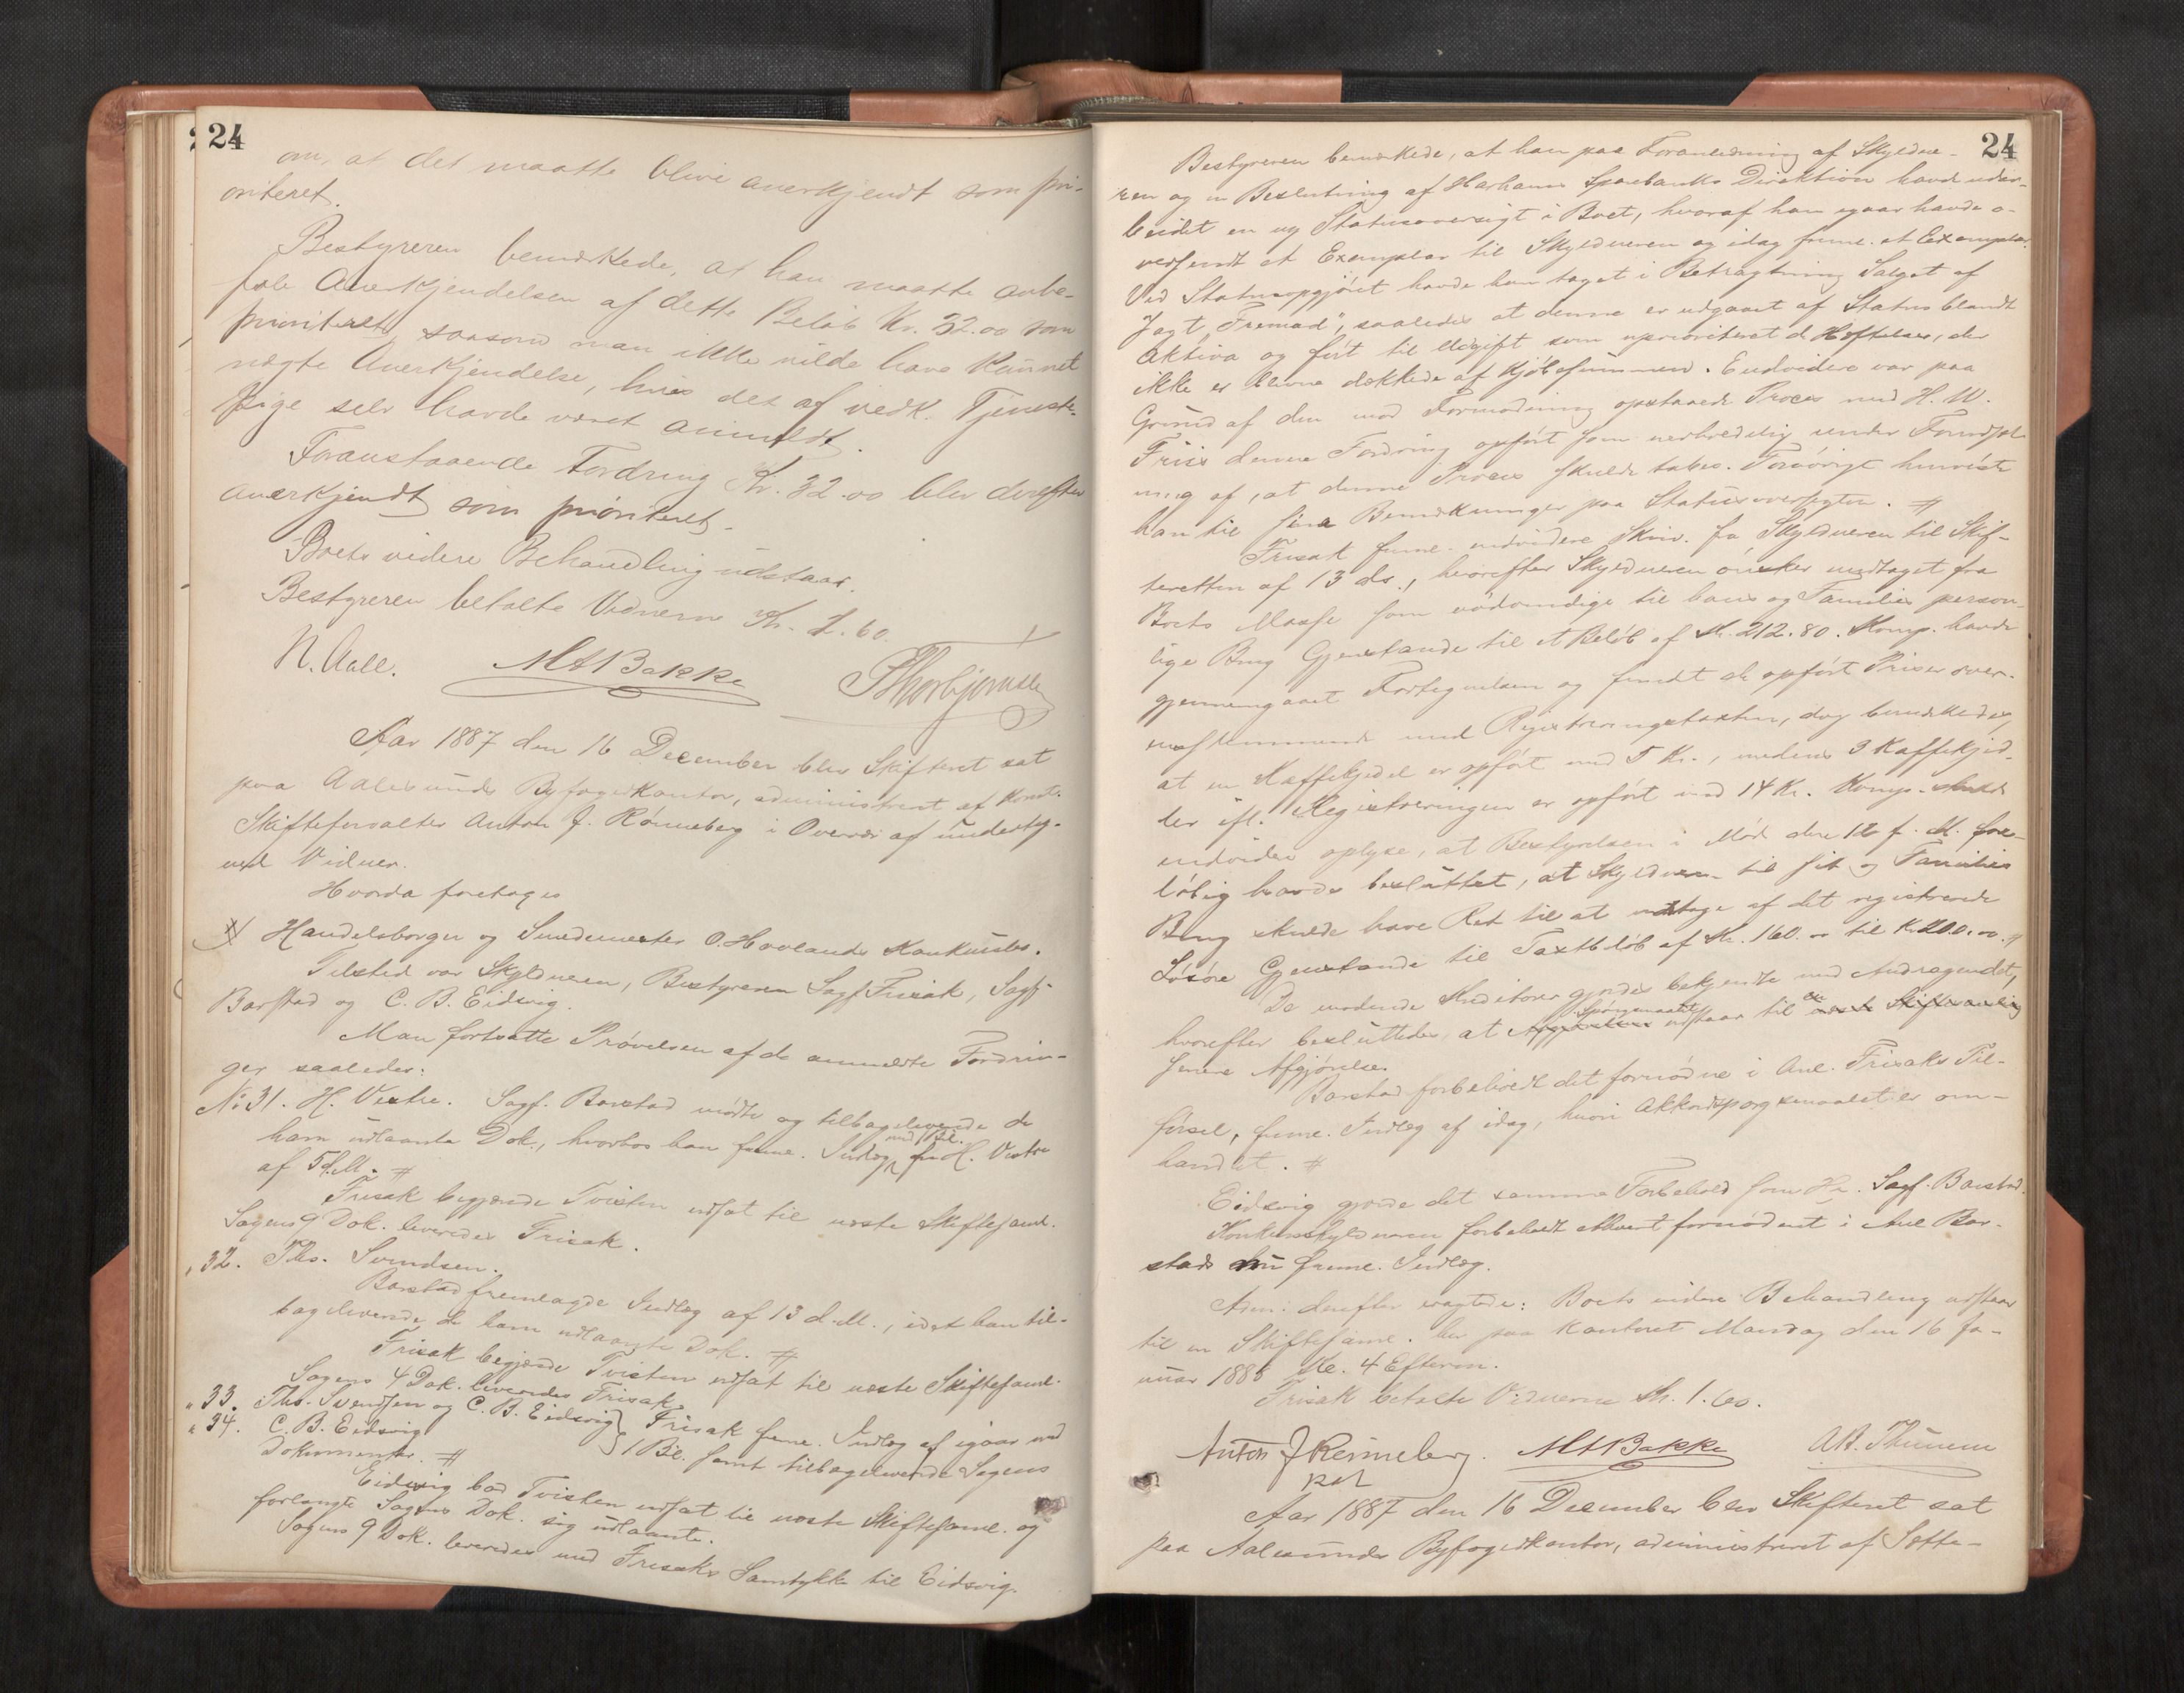 24
om, at det maatte blive anerkjendt som pri-
oriteret.
Bestyreren bemærkede, at han maatte anbe-
fale Anerkjendelsen af dette Beløb Kr. 32.00 som
prioriteret, saasom man ikke vilde have kunnet
nægte Anerkjendelse, hvis det af vedk. Tjeneste-
pige selv havde været anmeldt.
Foranstaaende Fordring Kr. 32.00 blev derefter
anerkjendt som prioriteret.
Boets videre Behandling udstaar.
Bestyreren betalte Vidnerne Kr. 1.60.
N. Aall. MABakke PThorbjørnsen
Aar 1887 den 16 December blev Skifteret sat
paa Aalesunds Byfogedkontor, administreret af Konst.
Skifteforvalter Anton J. Rønneberg i Overvær af underteg-
nede Vidner.
Hvorda foretoges
Handelsborger og Smedemester O. Hovlands Konkursbo.
Tilsted var Skyldneren, Bestyreren Sagf. Frisak, Sagf.
Barstad og C. B. Eidsvig.
Man fortsatte Prøvelsen af de anmeldte Fordrin-
ger saaledes:
No 31. H. Vestre. Sagf. Barstad mødte og tilbageleverede de
ham udlaante Dok., hvorhos han fremt. Indlæg med 1 Bil. fra H. Vestre
af 5 d.M. #
Frisak begjærede Tvisten udsat til næste Skiftesaml.
Sagens 9 Dok. leveredes Frisak.
" 32. Ths. Svendsen.
Barstad fremlagde Indlæg af 13 d.M., idet han til-
bageleverede de ham udlaante Dok. #
Frisak begjærede Tvisten udsat til næste Skiftesaml.
Sagens 4 Dok. leveredes Frisak.
" 33. Ths. Svendsen og C. B. Eidsvig } Frisak freml. Indlæg af igaar med
" 34. C. B. Eidsvig } 1 Bil. samt tilbageleverede Sagens
Dokumenter. #
Eidsvig bad Tvisten udsat til næste Skiftesaml. og
forlangte Sagens Dok. sig udlaante.
Sagens 9 Dok. leveredes med Frisaks Samtykke til Eidsvig.
24
Bestyreren bemærkede, at han paa Foranledning af Skyldne-
ren og en Beslutning af Harhams Sparebanks Direktion havde udar-
beidet en ny Statusoversigt i Boet, hvoraf han igaar havde o-
versendt et Exemplar til Skyldneren og idag freml. et Exemplar.
Ved Statusopgjøret havde han taget i Betragtning Salget af
Jagt "Fremad", saaledes at denne er udgaaet af Status blandt
Aktiva og ført til Udgift som uprioriteret d Hæftelser, der
ikke er blevne dækkede af Kjøbesummen. Endvidere var paa
Grund af den mod Formodning opstaaede Proces med H. W.
Friis denne Fordring opført som uerholdelig under Forudsæt-
ning af, at denne Proces skulde tabes. Forøvrigt henviste
han til sine Bemærkninger paa Statusoversigten. #
Frisak freml. endvidere Skriv. fra Skyldneren til Skif-
teretten af 13 ds., hvorefter Skyldneren ønsker undtaget fra
Boets Masse som nødvendige til hans og Families person-
lige Brug Gjenstande til et Beløb af Kr. 212.80. Komp. havde
gjennemgaaet Fortegnelsen og fundet de opført Priser over-
ensstemmende med Registreringstaxten, dog bemærkedes,
at en Kaffekjedel er opført med 5 Kr., medens 3 Kaffekjed-
ler ifl. Registreringen er opført med 14 Kr. Komp. skulde
endvidere oplyse, at Bestyrelsen i Mød den 12 f. M. fore-
løbig havde besluttet, at Skyldneren til sit og Families
Brug skulde have Ret til at undtage af det registrerede
Løsøre Gjenstande til Taxtbeløb af Kr. 160.00 til Kr. 200.00. #
De mødende Kreditorer gjordes bekjendte med Andragendet,
hvorefter besluttedes, at Spørgsmaalet udstaar til en
senere Afgjørelse.
Barstad forbeholdt det fornødne i Anl. Frisaks Til-
førsel, freml. Indlæg af idag, hvori Akkordspørgsmaalet er om-
handlet. #
Eidsvig gjorde det samme Forbehold som Hr. Sagf. Barstad.
Konkursskyldneren forbeholdt ethvert fornødent i Anl Bar-
stads nu freml. Indlæg.
Adm: derefter eragtede: Boets videre Behandling udstaar
til en Skiftesaml. her paa Kontoret Mandag den 16 Ja-
nuar 1888 Kl. 4 Efterm.
Frisak betalte Vidnerne Kr. 1.60.
Anton J Rønneberg. MABakke
Aar 1887 den 16 December blev Skifteret sat
paa Aalesunds Byfogedkontor, administreret af Sætte-